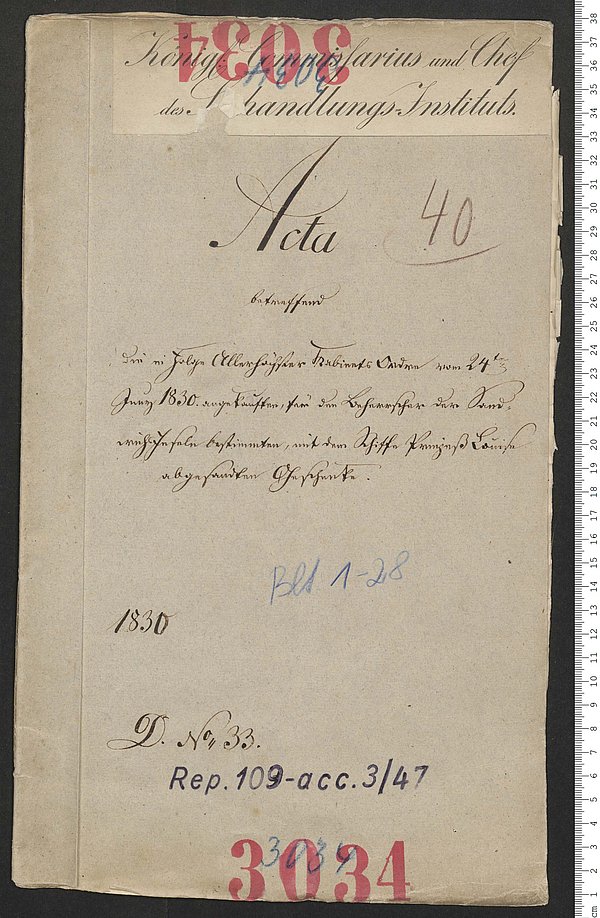 3034
3034
Königl. Commissarius und Chef
des Seehandlungs-Instituts.
Acta
40
betreffend
die in Folge Allerhöchster Kabinets Ordre vom 24ten
Juny 1830. angekauften, für den Beherrscher der Sand-
wich-Inseln bestimmten, mit dem Schiffe Prinzeß Louise
abgesandten Geschenke.
Blt 1-28
1830
D. No, 33.
Rep. 109-acc. 3/47
3034
3034